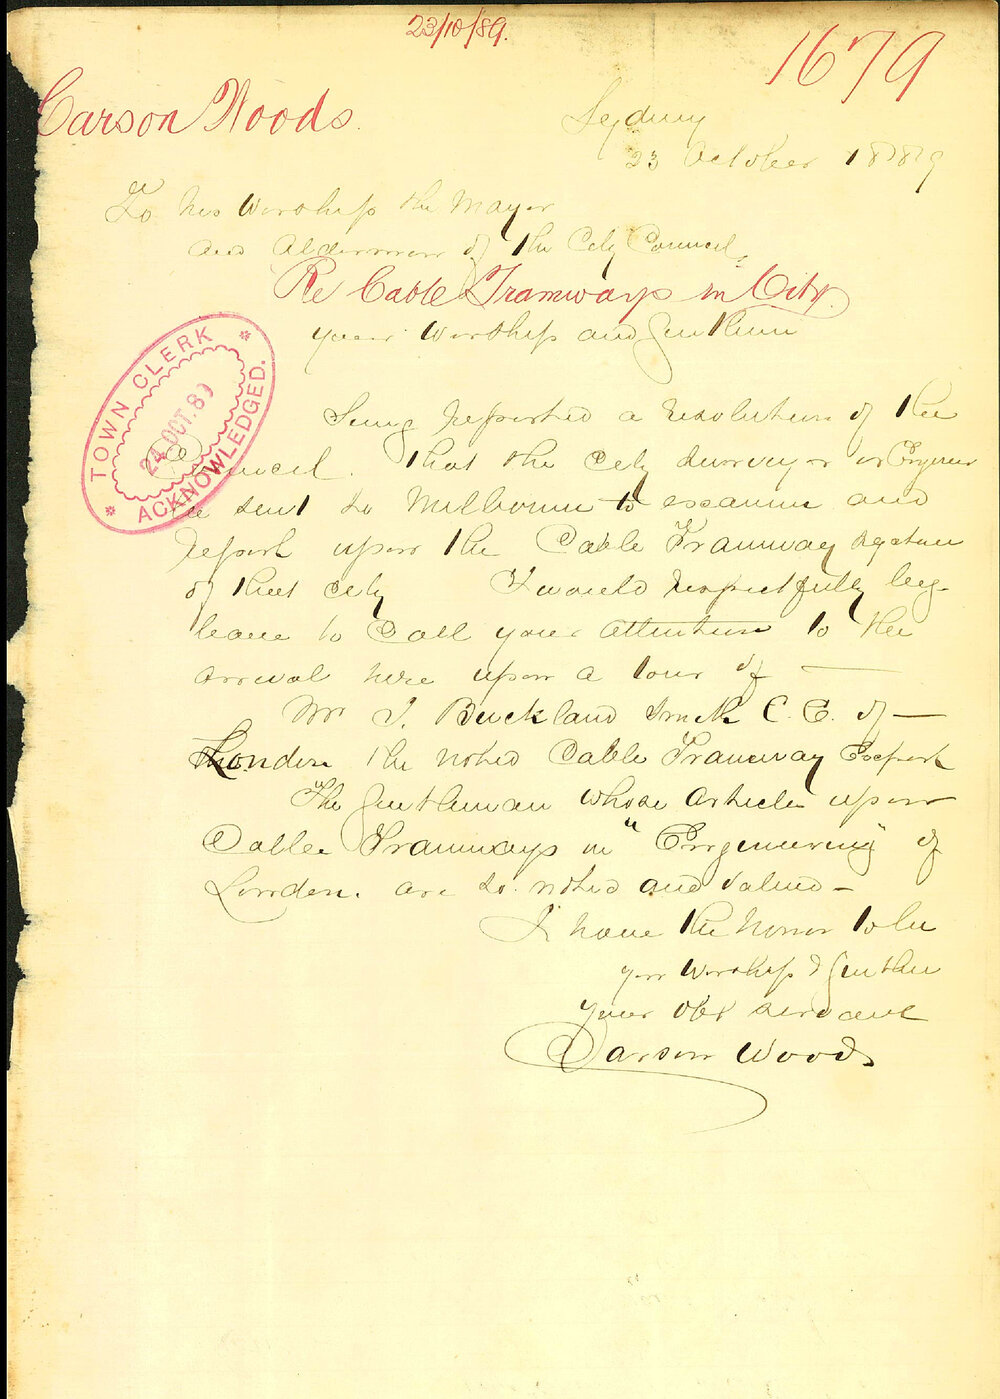 23/10/89.
1679
Carson Woods.
Sydney
23 October 1889
To his Worship the Mayor
and Aldermen of the City Council.
Re Cable Tramways in City.
your Worship and Gentlemen
TOWN CLERK
24 OCT. 89
ACKNOWLEDGED.
reported a resolution of the
Council. that the City Surveyor or Engineer
be sent to Melbourne to examine and
report upon the Cable Tramway system
of that city I would respectfully beg
leave to Call your attention to the
arrival here upon a tour of —
Mr J. Buckland Smith C.E. of —
London the noted Cable Tramway Expert
The Gentleman whose articles upon
Cable Tramways in "Engineering" of
London. are so noted and valued –
I have the honor to be
your Worship & Gentlemen
your obt servant
Carson Woods